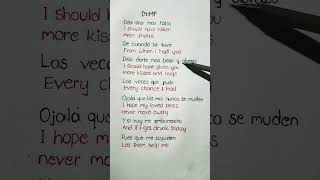 DtMF
Debí tirar más fotos
I should have taken
more photos
De cuando te tuve
From when I had you
Debí darte más beso y abrazo
I should have given you
more kisses and hugs
Las veces que pude
Every chance I had
Ojalá que los mío nunca se muden
I hope my loved ones
never move away
Y si hoy me emborracho
And if I get drunk today
Pues que me ayuden
Let them help me!